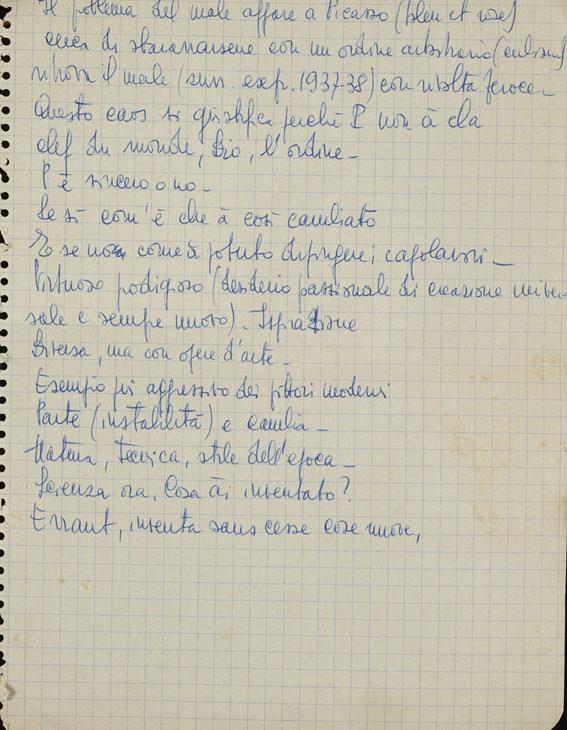 Il problema del male appare a Picasso (bleu et rose)
cerca di sbarazzarsene con un ordine arbitrario (cubismo)
ritrova il male (surr. esp. 1937-38) con rivolta feroce -
Questo caos si giustifica perché P non à la
clef du monde, Dio, l'ordine -
P è sincero o no -
Se sì com'è che à così cambiato
E se no come à potuto dipingere i capolavori -
Virtuoso prodigioso (desiderio passionale di creazione univer
sale e sempre nuovo). Ispirazione
Diversa, ma con opere d'arte -
Esempio più aggressivo dei pittori moderni
Parte (instabilità) e cambia -
Materia, tecnica, stile dell'epoca -
Scienza ora. Cosa ài inventato?
Errant, inventa sans cesse cose nuove,